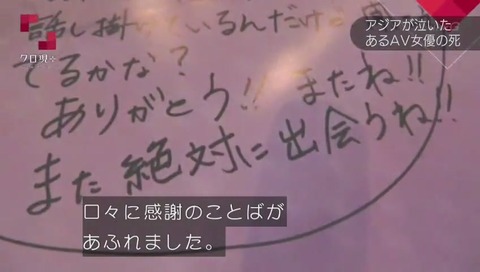 クロ現+
アジアが泣いた
あるAV女優の死
話し掛けているんだけど
てるかな?
ありがとう!! またね!!
また絶対に出会うね!!
口々に感謝のことばが
あふれました。